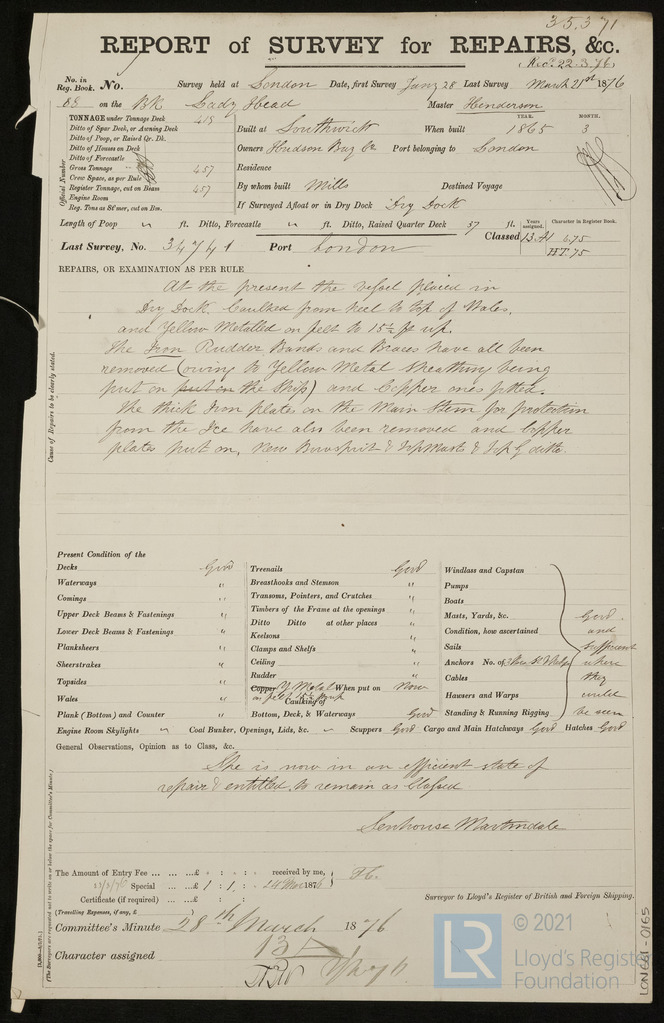 35371
REPORT of SURVEY for REPAIRS, &c.
Rec. 22.3.76
No. in Reg. Book. No. Survey held at London Date, first Survey Jany 28 Last Survey March 21st 1876
88 on the BK Lady Head Master Henderson
TONNAGE under Tonnage Deck 418
Ditto of Spar Deck, or Awning Deck
Ditto of Poop, or Raised Qr. Dk.
Ditto of Houses on Deck
Ditto of Forecastle
Gross Tonnage 457
Crew Space, as per Rule
Register Tonnage, cut on Beam 457
Engine Room
Reg. Tons as St'mer, cut on Bm.
Official Number
Built at Southwick When built YEAR. 1865 MONTH. 3
Owners Hudson Bay Co Port belonging to London
Residence
By whom built Mills Destined Voyage
If Surveyed Afloat or in Dry Dock Dry Dock
Length of Poop " ft. Ditto, Forecastle " ft. Ditto, Raised Quarter Deck 37 ft.
Classed Years assigned. 13 A1 Character in Register Book. 6.75
HT.75
Last Survey, No. 34741 Port London
REPAIRS, OR EXAMINATION AS PER RULE
At the present the vessel placed in
Dry Dock. Caulked from keel to top of Wales,
and Yellow Metalled on felt to 15½ ft up.
The Iron Rudder Bands and Braces have all been
removed (owing to Yellow Metal sheathing being
put on put on the Ship) and Copper ones fitted.
The thick Iron plates on the Main Stem for protection
from the Ice have also been removed and Copper
plates put on, New Bowsprit & TopMasts & Top G ditto.
Cause of Repairs to be clearly stated.
Present Condition of the
Decks Good
Waterways "
Comings "
Upper Deck Beams & Fastenings "
Lower Deck Beams & Fastenings "
Planksheers "
Sheerstrakes "
Topsides "
Wales "
Plank (Bottom) and Counter "
Treenails Good
Breasthooks and Stemson "
Transoms, Pointers, and Crutches "
Timbers of the Frame at the openings "
Ditto Ditto at other places "
Keelsons "
Clamps and Shelfs "
Ceiling "
Rudder "
Copper Y Metal When put on Now
on felt 15½ ft up
Caulking of
Bottom, Deck, & Waterways Good
Windlass and Capstan
Pumps
Boats
Masts, Yards, &c.
Condition, how ascertained
Sails
Anchors No. of
Cables
Hawsers and Warps
Standing & Running Rigging
Good
and
sufficient
where
they
could
be seen
Engine Room Skylights " Coal Bunker, Openings, Lids, &c. " Scuppers Good Cargo and Main Hatchways Good Hatches Good
General Observations, Opinion as to Class, &c.
She is now in an efficient state of
repair & entitled to remain as Classed
Senhouse Martindale
The Amount of Entry Fee ... ... ...£ : : received by me,
Special ... ...£ 1 : 1 : 24 Mar 1876
Certificate (if required) ... ...£ : :
(Travelling Expenses, if any, £ )
Surveyor to Lloyd's Register of British and Foreign Shipping.
Committee's Minute 28th March 1876
Character assigned 13
(The Surveyors are requested not to write on or below the space for Committee's Minute.)
LR
© 2021
Lloyd's Register
Foundation
LON661-0165